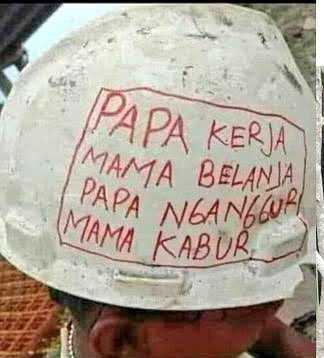 PAPA KERJA
MAMA BELANJA
PAPA NGANGGUR
MAMA KABUR